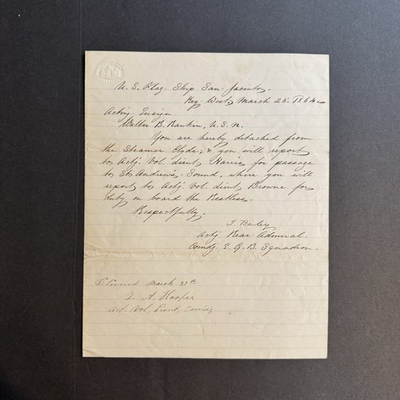 U. S. Flag Ship San Jacinto
Key West, March 25. 1864
Acting Ensign
Walter B. Rankin, U. S. N.
You are hereby detached from
the Steamer Clyde, & you will report
to Actg. Vol. Lieut Harris for passage
to St Andrews Sound, where you will
report to Actg Vol Lieut Browne for
duty on board the Restless.
Respectfully,
T. Bailey
Actg Rear Admiral.
Comdg E. G. B. Squadron.
March 27th
A. Hooper
Act. Vol. Lieut, Comdg